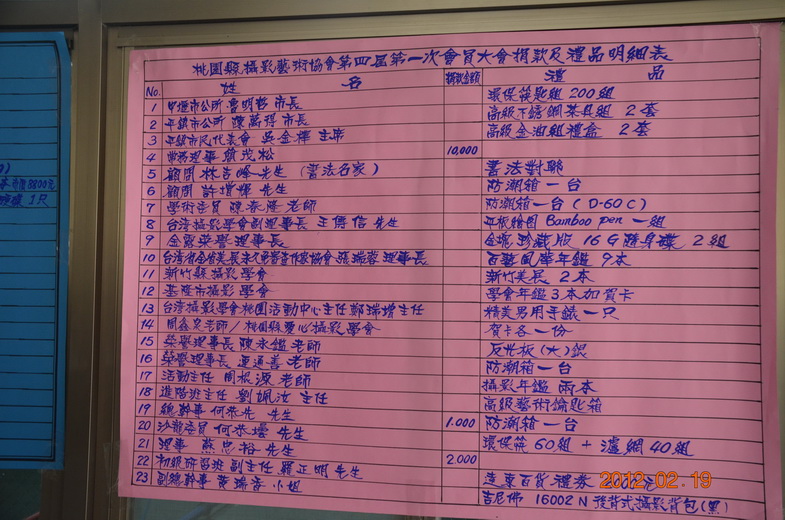 桃園縣攝影藝術協會第四屆第一次會員大會捐款及禮品明細表
No. 姓 名 捐款金額 禮 品
1 中壢市公所 魯明哲 市長 環保筷匙組 200組
2 平鎮市公所 陳萬得 市長 高級不銹鋼茶具組 2套
3 平鎮市民代表會 吳金樺 主席 高級金油組禮盒 2套
4 常務理事 茂松 10,000
5 顧問 林吉峰 先生 (書法名家) 書法對聯
6 顧問 許增輝 先生 防潮箱一台
7 學術委員 陳春隆 老師 防潮箱一台 (D-60C)
8 台灣攝影學會副理事長 王傳信 先生 平板繪圖 Bamboo pen 一組
9 金 榮譽理事長 金塊珍藏版 16G隨身碟 2組
10 台灣省全省美展永久免審查作家協會 張瑞蓉 理事長 百藝風華年鑑 9本
11 新竹縣攝影學會 新竹美展 2本
12 基隆市攝影學會 學會年鑑3本加賀卡
13 台灣攝影學會桃園活動中心主任 鄭瑞增主任 精美男用手錶一只
14 周鑫泉老師/桃園縣愛心攝影學會 賀卡各一份
15 榮譽理事長 陳永鑑 老師 反光板(大)銀
16 榮譽理事長 連通善 老師 防潮箱一台
17 活動主任 周根源 老師 攝影年鑑 兩本
18 進階班主任 劉姵汝 主任 高級藝術鑰匙箱
19 總幹事 何恭先 先生 防潮箱一台
20 沙龍委員 何恭壜 先生 1.000 環保筷60組 + 濾網40組
21 理事 蔡忠裕 先生
22 初級研習班 副主任 羅正明 先生 2.000
23 副總幹事 黃瑞香 小姐 遠東百貨禮券 元
吉尼佛 16002N 後背式攝影背包(黑)
2012.02.19
8800元
1只